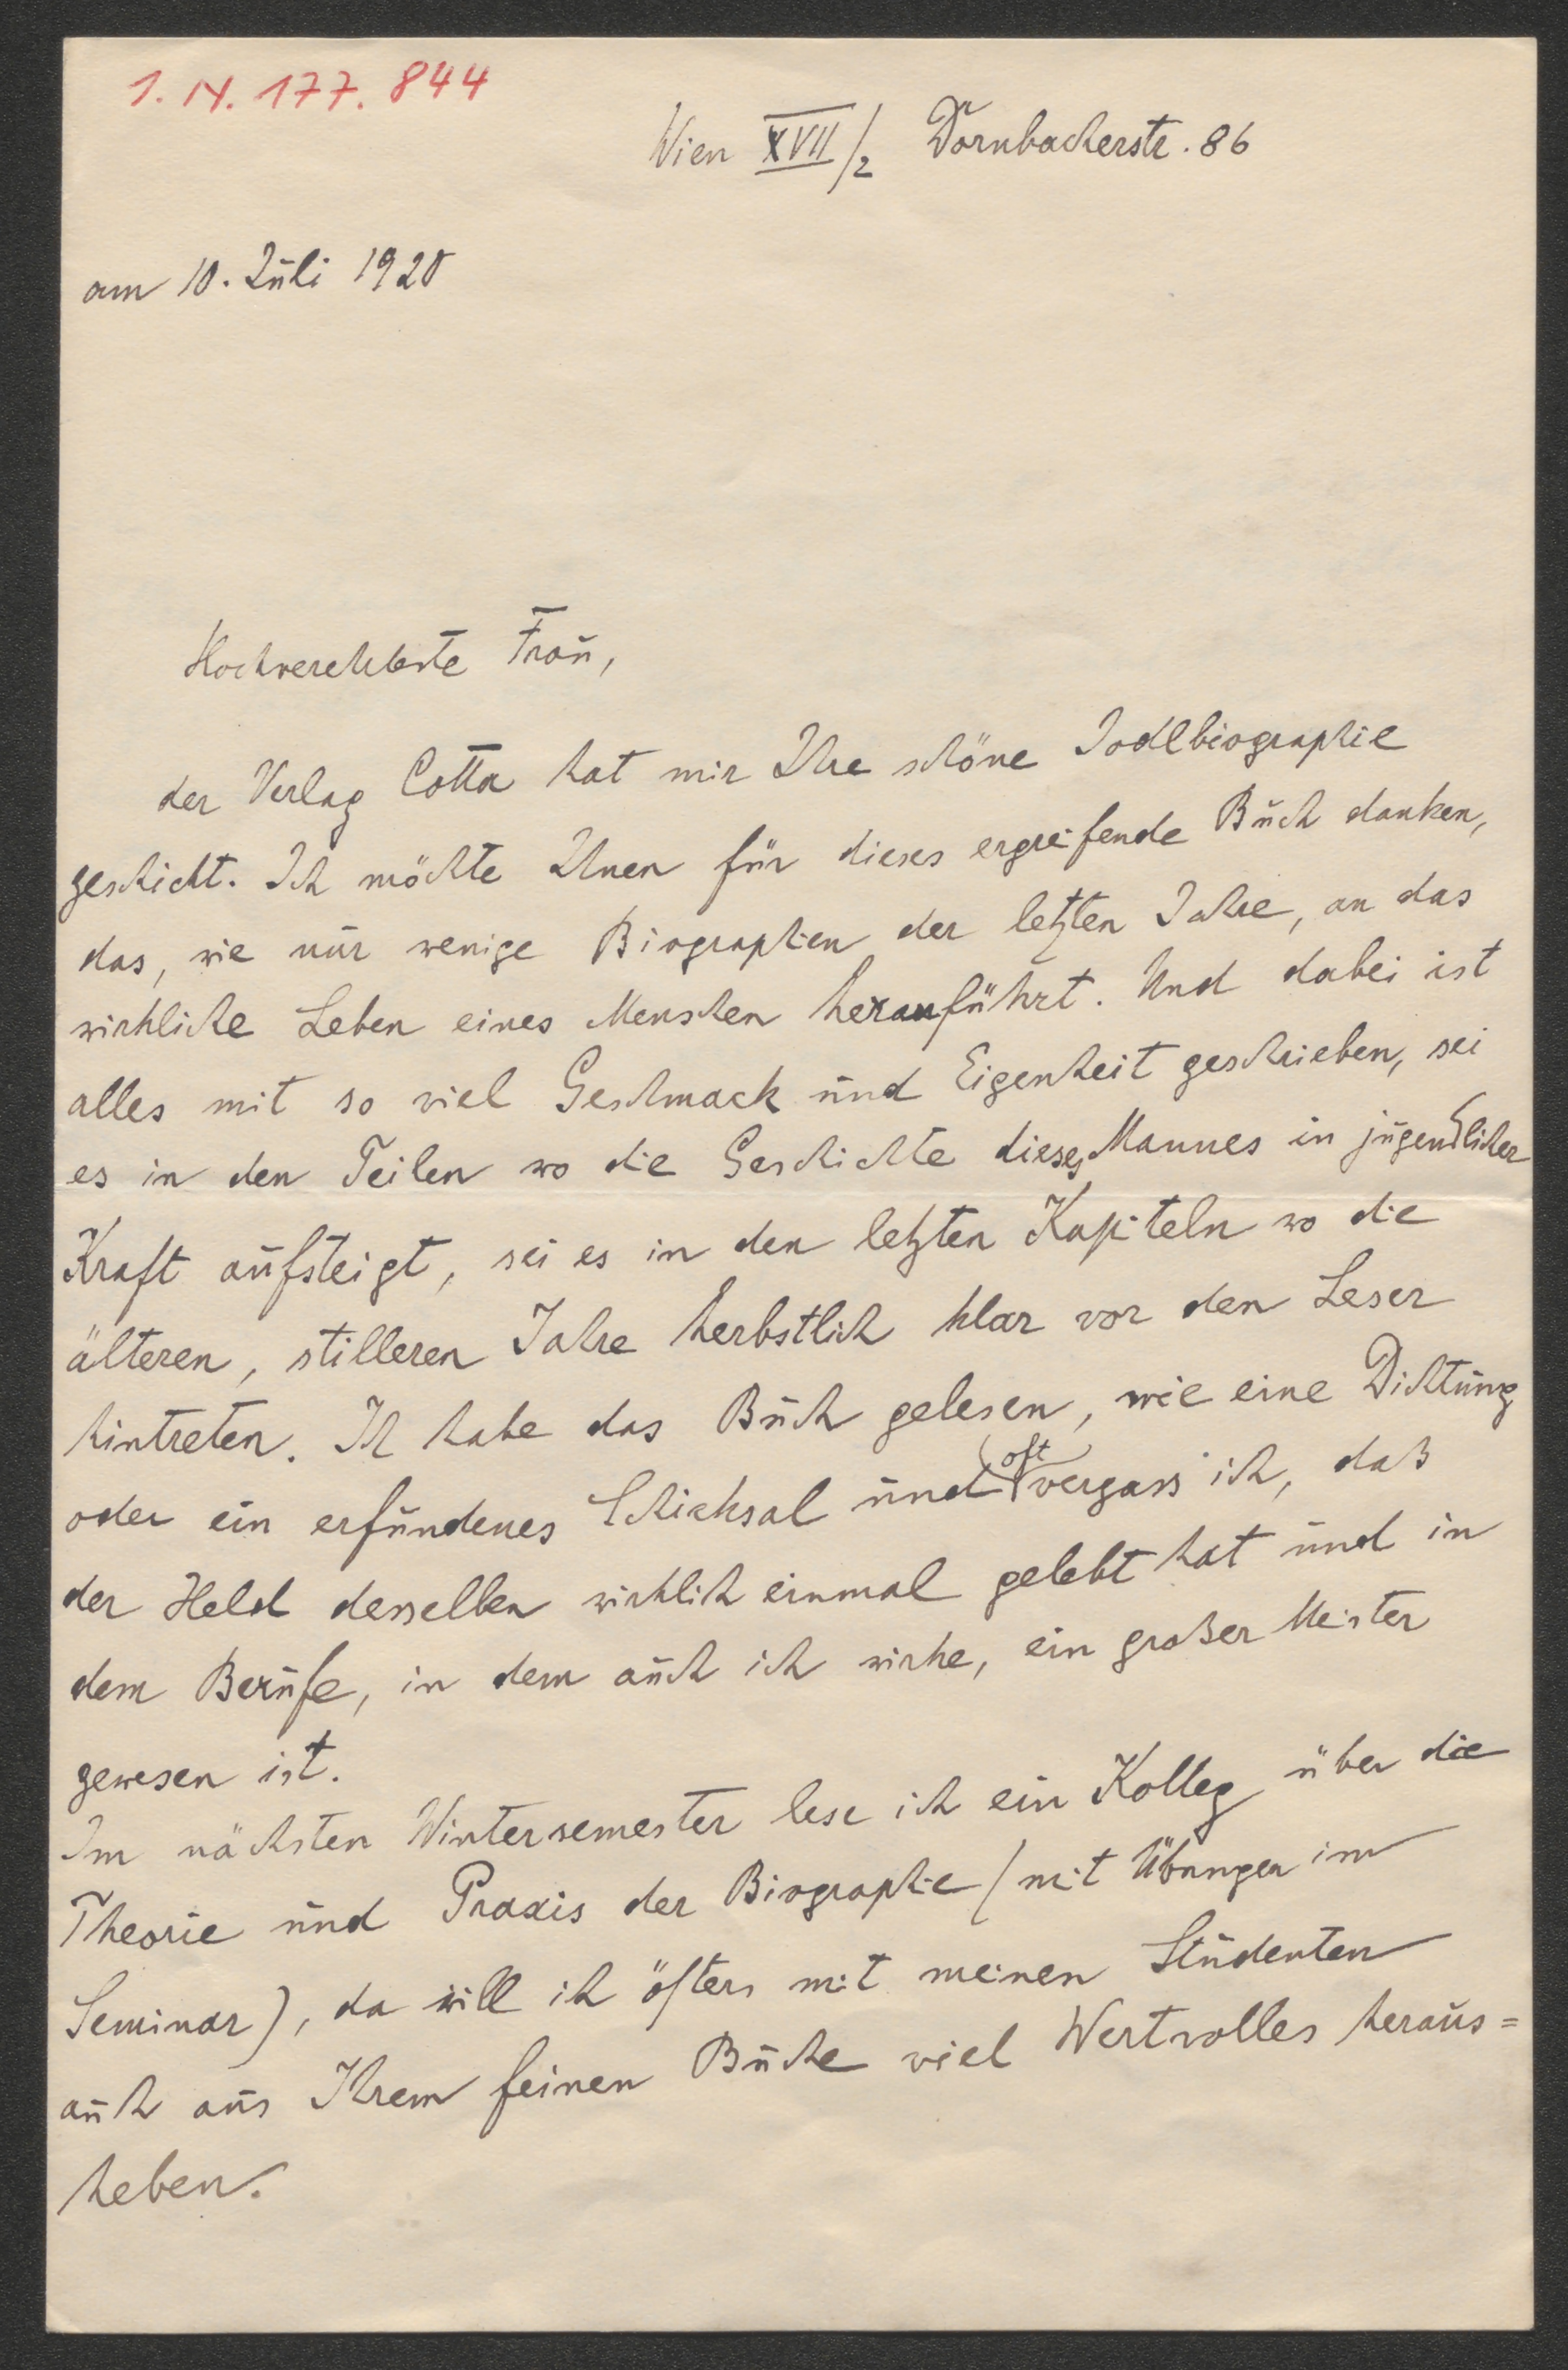 1. N. 177. 844
Wien XVII/2 Dornbacherstr. 86
am 10. Juli 1920
Hochverehrte Frau,
der Verlag Cotta hat mir Ihre schöne Jodlbiographie
geschickt. Ich möchte Ihnen für dieses ergreifende Buch danken,
das, wie nur wenige Biographien der letzten Jahre, an das
wirkliche Leben eines Menschen heranführt. Und dabei ist
alles mit so viel Geschmack und Eigenheit geschrieben, sei
es in den Teilen wo die Geschichte dieses Mannes in jugendlicher
Kraft aufsteigt, sei es in den letzten Kapiteln wo die
älteren, stilleren Jahre herbstlich klar vor den Leser
hintreten. Ich habe das Buch gelesen, wie eine Dichtung
oder ein erfundenes Schicksal und oft vergass ich, daß
der Held desselben wirklich einmal gelebt hat und in
dem Berufe, in dem auch ich wirke, ein großer Meister
gewesen ist.
Im nächsten Wintersemester lese ich ein Kolleg über die
Theorie und Praxis der Biographie (mit Übungen im
Seminar), da will ich öfters mit meinen Studenten
auch aus Ihrem feinen Buche viel Wertvolles heraus=
heben.